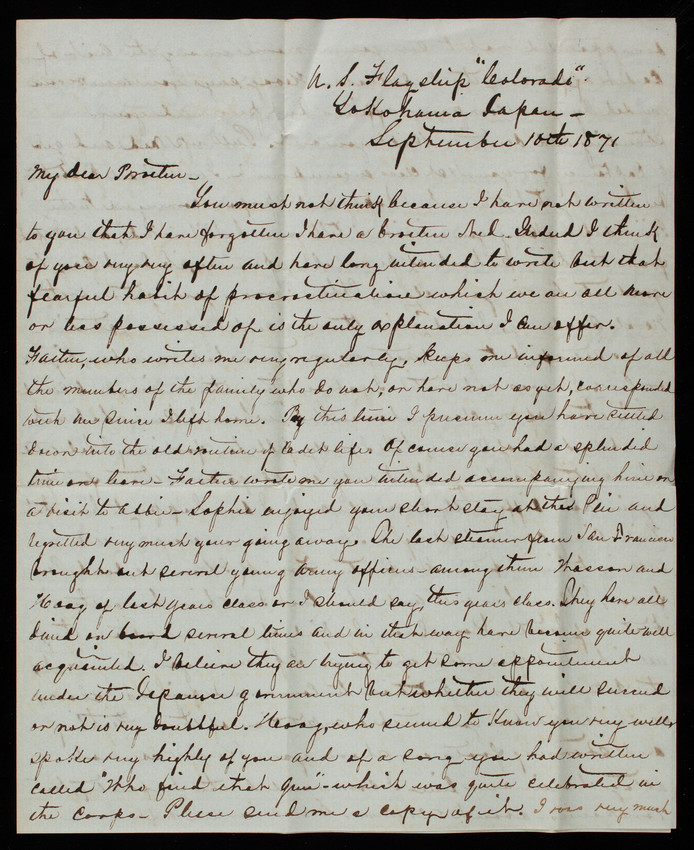 U. S. Flagship "Colorado".
Yokohama Japan -
September 10th 1871
My dear Brother -
You must not think because I have not written
to you that I have forgotten I have a brother Ned. Indeed I think
of you very very often and have long intended to write but that
fearful habit of procrastination which we are all more
or less possessed of is the only explanation I can offer.
Father, who writes me very regularly, keeps me informed of all
the members of the family who do not, or have not as yet, corresponded
with me since I left home. By this time I presume you have settled
down into the old routine of Cadet life. Of course you had a splendid
time on leave - Father wrote me you intended accompanying him on
a visit to Abbie - Sophie enjoyed your short stay at the and
regretted very much your going away. The last steamer from San Francisco
brought out several young Army officers - among them Wasson and
Hoag of last years class or I should say, this years class. They have all
dined on board several times and in that way have become quite well
acquainted. I believe they are trying to get some appointment
under the Japanese government but whether they will succeed
or not is very doubtful. Hoag, who seemed to know you very well,
spoke very highly of you and of a song you had written
called "Who find that gun" - which was quite celebrated in
the Corps - Please send me a copy of it. I was very much